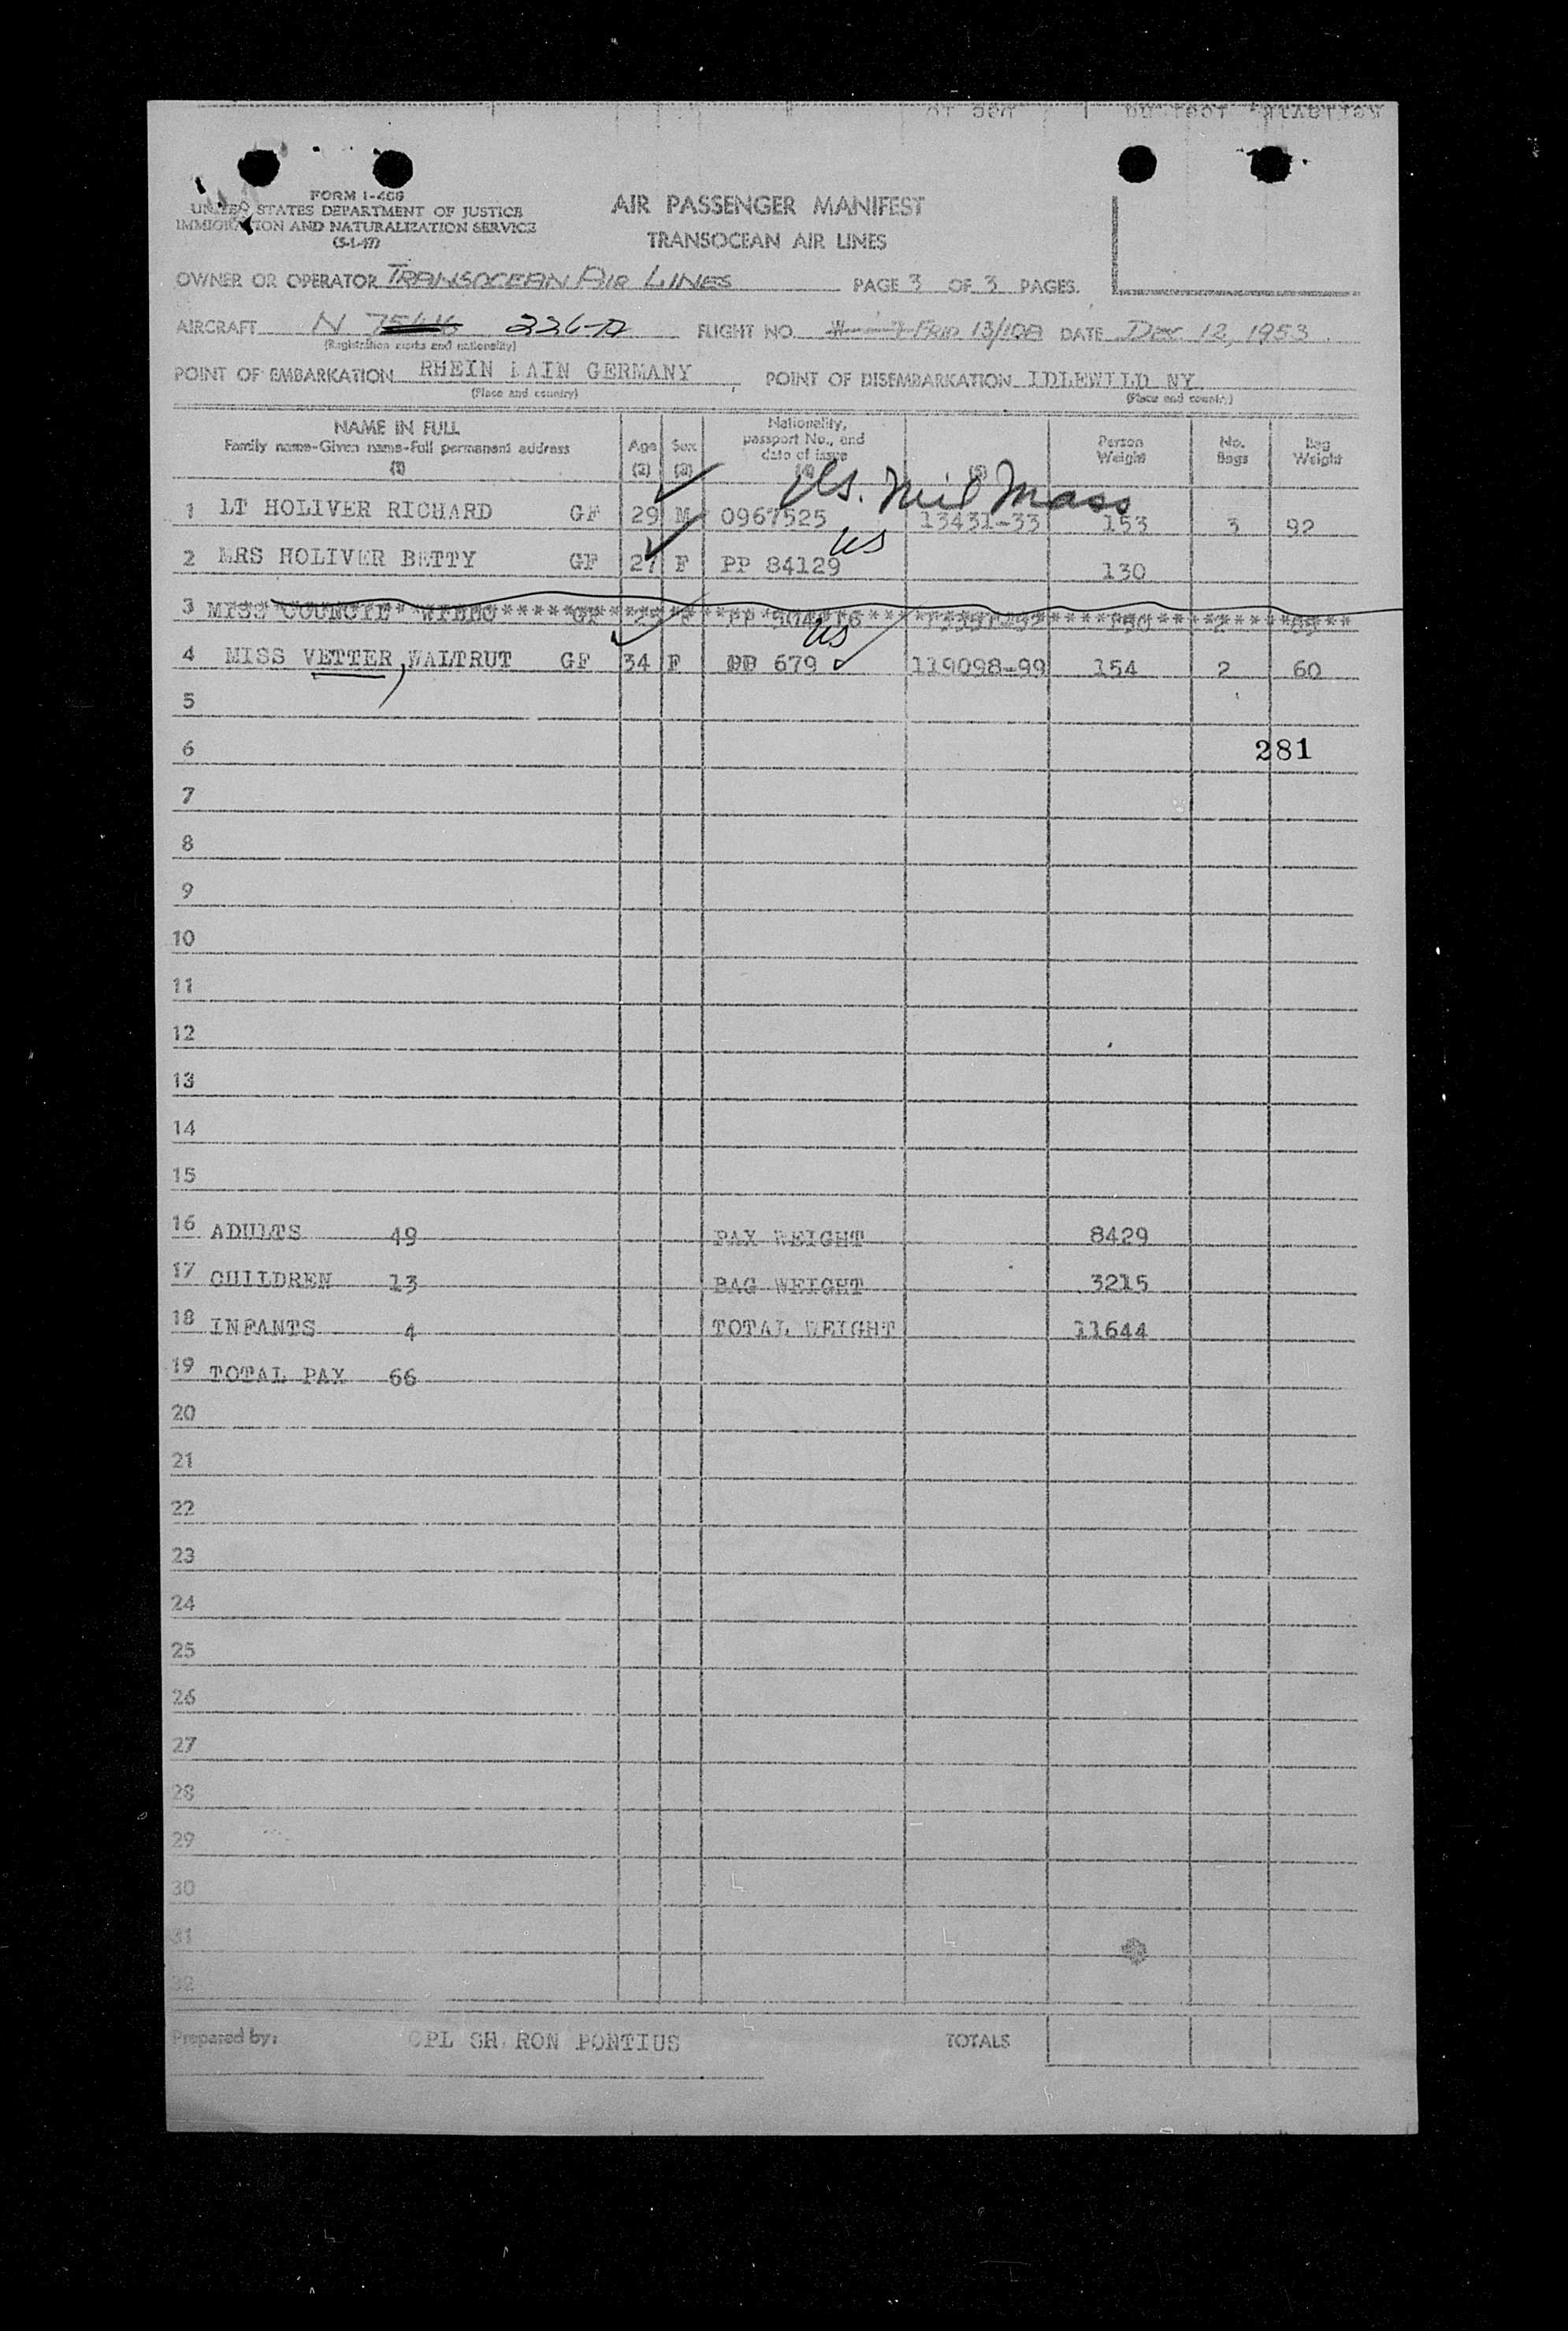 FORM I-466
UNITED STATES DEPARTMENT OF JUSTICE
IMMIGRATION AND NATURALIZATION SERVICE
(5-1-47)
AIR PASSENGER MANIFEST
TRANSOCEAN AIR LINES
OWNER OR OPERATOR TRANSOCEAN AIR LINES PAGE 3 OF 3 PAGES.
AIRCRAFT N 226-A FLIGHT NO. 13/108 DATE Dec. 12, 1953
(Registration marks and nationality)
POINT OF EMBARKATION RHEIN MAIN GERMANY, POINT OF DISEMBARKATION IDLEWILD NY
(Place and country) (Place and country)
NAME IN FULL
Family name-Given name-Full permanent address
(1)
Age
(2)
Sex
(3)
Nationality, passport No., and date of issue
(4)
(5)
Person Weight
No. Bags
Bag Weight
Us. Mil Mass
1 LT HOLIVER RICHARD GF 29 M 0967525 13431-33 153 3 92
US
2 MRS HOLIVER BETTY GF 27 F PP 84129 130
3 MISS COUNCIL GF
US
4 MISS VETTER, WALTRUT GF 34 F 679 119098-99 154 2 60
5
6 281
7
8
9
10
11
12
13
14
15
16 ADULTS 49 PAX WEIGHT 8429
17 CHILDREN 13 BAG WEIGHT 3215
18 INFANTS 4 TOTAL WEIGHT 11644
19 TOTAL PAX 66
20
21
22
23
24
25
26
27
28
29
30
31
32
Prepared by: CPL SH RON PONTIUS TOTALS